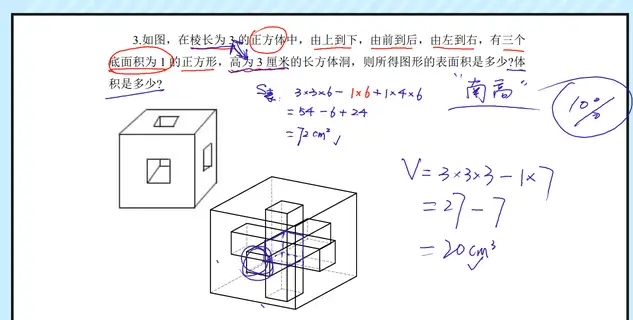 3.如图，在棱长为 3 的正方体中，由上到下，由前到后，由左到右，有三个
底面积为 1 的正方形，高为 3 厘米的长方体洞，则所得图形的表面积是多少?体
积是多少?
S表: 3×3×6-1×6+1×4×6
=54-6+24
=72cm²
"南高"
10%
V=3×3×3-1×7
=27-7
=20cm³